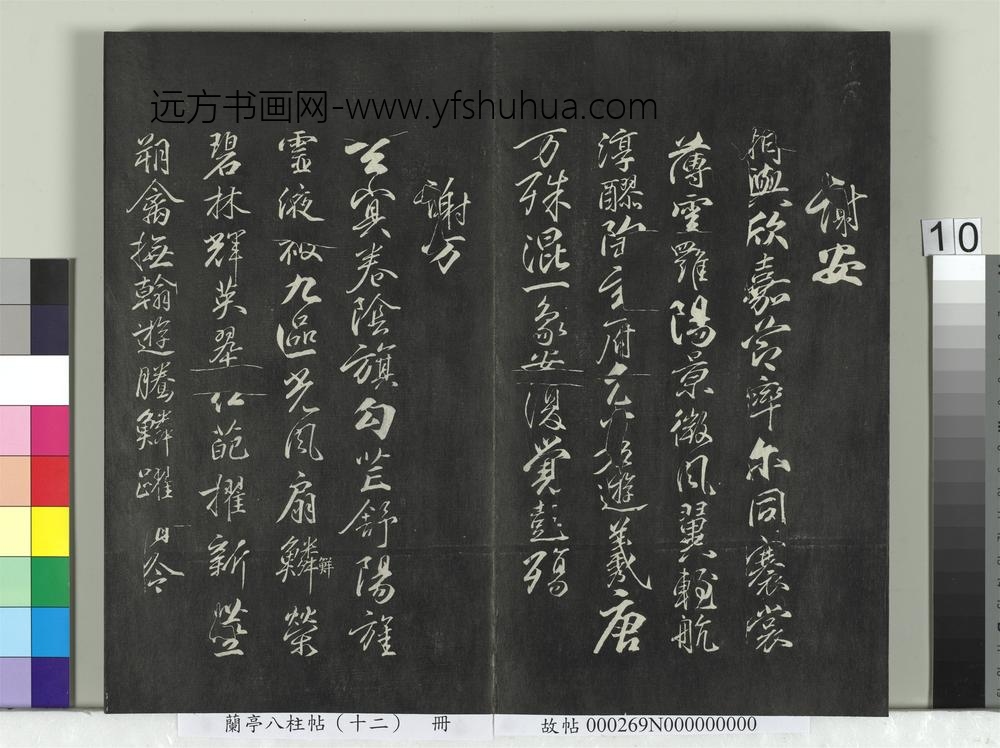 謝安
相與欣嘉節率尔同褰裳
薄雲羅陽景微風翼輕航
淳醪陶玄府兀若遊羲唐
万殊混一象安復覺彭殤
謝万
玄冥卷陰旗句芒舒陽旌
靈液被九區光風扇鱗榮
鮮
碧林輝英翠紅葩擢新莖
翔禽撫翰遊騰鱗躍清泠
远方书画网-www.yfshuhua.com
10
蘭亭八柱帖（十二） 冊
故帖 000269N000000000